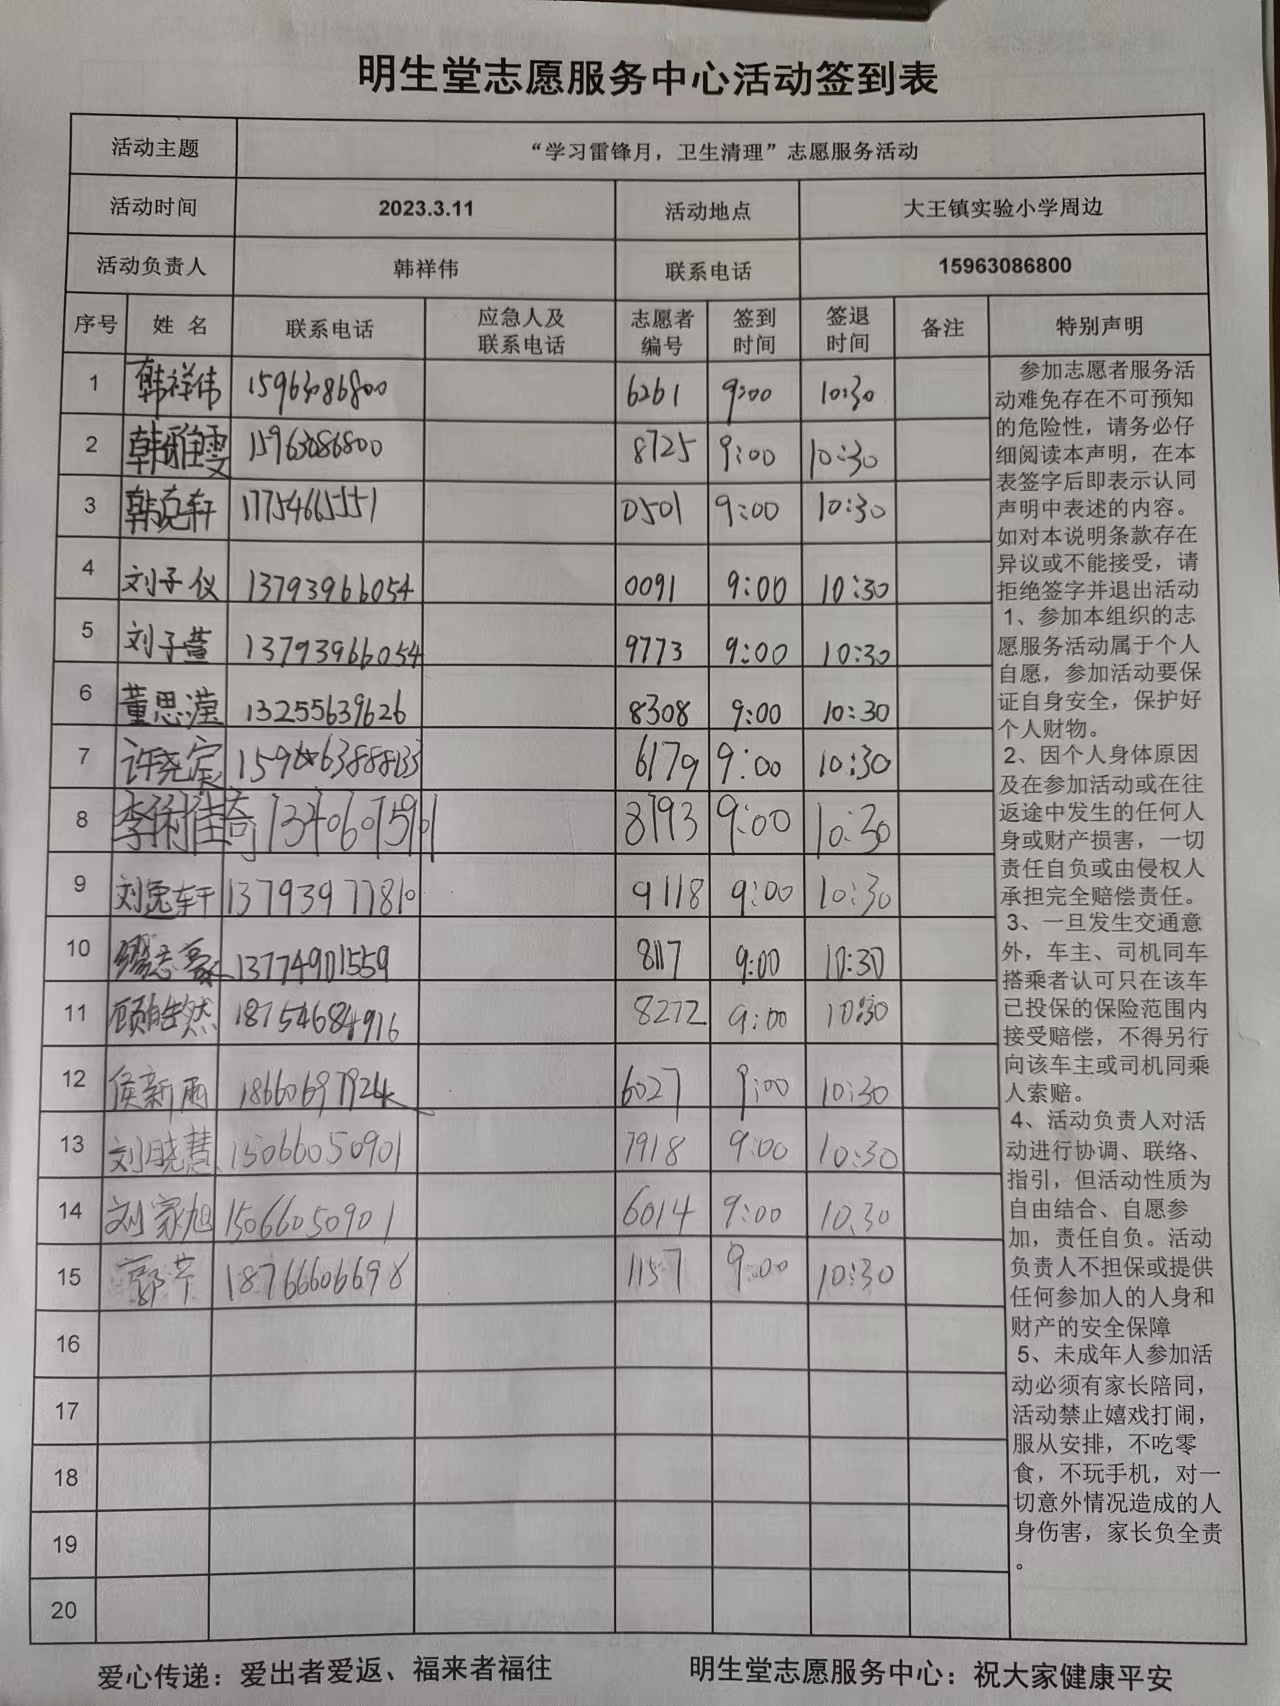 明生堂志愿服务中心活动签到表
活动主题 “学习雷锋月，卫生清理”志愿服务活动
活动时间 2023.3.11 活动地点 大王镇实验小学周边
活动负责人 韩祥伟 联系电话 15963086800
序号 姓 名 联系电话 应急人及联系电话 志愿者编号 签到时间 签退时间 备注 特别声明
1 韩祥伟 15963086800 6261 9:00 10:30
2 韩雅雯 15963086800 8725 9:00 10:30
3 韩克轩 17754665551 0501 9:00 10:30
4 刘子仪 13793966054 0091 9:00 10:30
5 刘子萱 13793966054 9773 9:00 10:30
6 董思滢 13255639626 8308 9:00 10:30
7 许尧宸 6179 9:00 10:30
8 李俐佳奇 13406075901 8793 9:00 10:30
9 刘逸轩 13793977810 9118 9:00 10:30
10 志豪 13774901559 8117 9:00 10:30
11 顾皓然 18754684916 8272 9:00 10:30
12 侯新雨 18660697924 6027 9:00 10:30
13 刘晓慧 15066050901 7918 9:00 10:30
14 刘家旭 15066050901 6014 9:00 10:30
15 郭芹 18766606698 1157 9:00 10:30
16
17
18
19
20
参加志愿者服务活
动难免存在不可预知
的危险性，请务必仔
细阅读本声明，在本
表签字后即表示认同
声明中表述的内容。
如对本说明条款存在
异议或不能接受，请
拒绝签字并退出活动
1、参加本组织的志
愿服务活动属于个人
自愿，参加活动要保
证自身安全，保护好
个人财物。
2、因个人身体原因
及在参加活动或在往
返途中发生的任何人
身或财产损害，一切
责任自负或由侵权人
承担完全赔偿责任。
3、一旦发生交通意
外，车主、司机同车
搭乘者认可只在该车
已投保的保险范围内
接受赔偿，不得另行
向该车主或司机同乘
人索赔。
4、活动负责人对活
动进行协调、联络、
指引，但活动性质为
自由结合、自愿参
加，责任自负。活动
负责人不担保或提供
任何参加人的人身和
财产的安全保障
5、未成年人参加活
动必须有家长陪同，
活动禁止嬉戏打闹，
服从安排，不吃零
食，不玩手机，对一
切意外情况造成的人
身伤害，家长负全责
。
爱心传递：爱出者爱返、福来者福往 明生堂志愿服务中心：祝大家健康平安